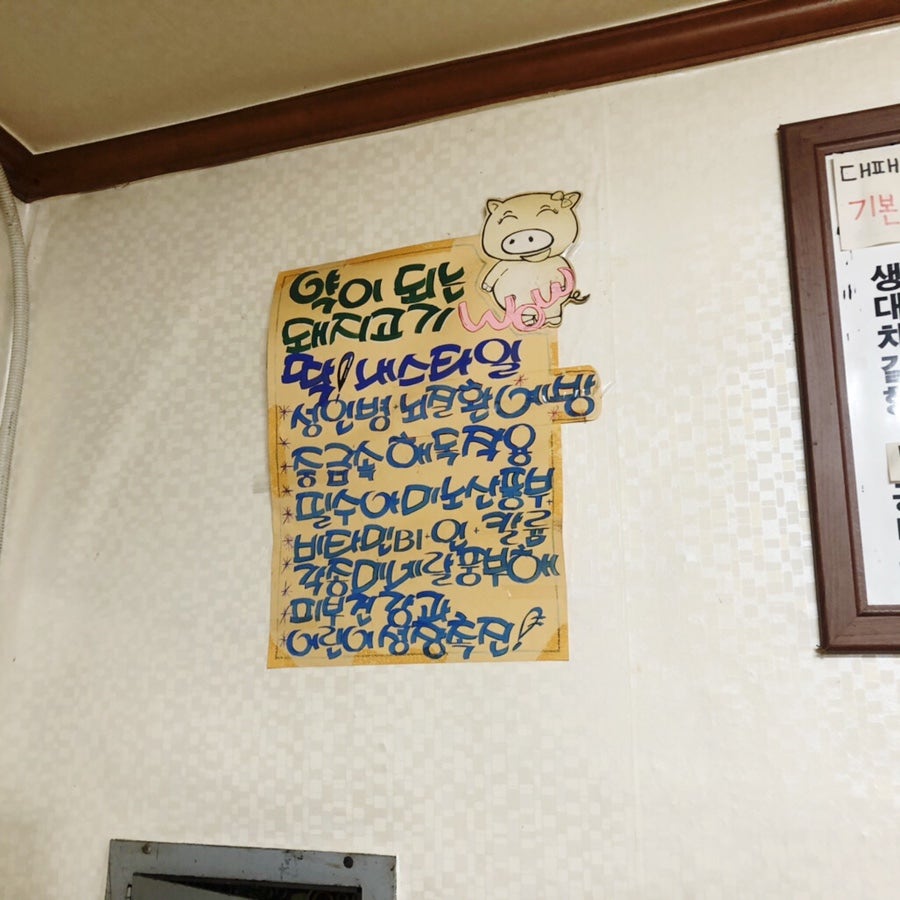 약이 되는
돼지고기
WOW
딱! 내스타일
* 성인병·뇌질환 예방
* 중금속 해독작용
* 필수아미노산풍부
* 비타민B1·인·칼륨
* 각종미네랄풍부해
* 피부건강과
* 어린이성장촉진!
대패
기본